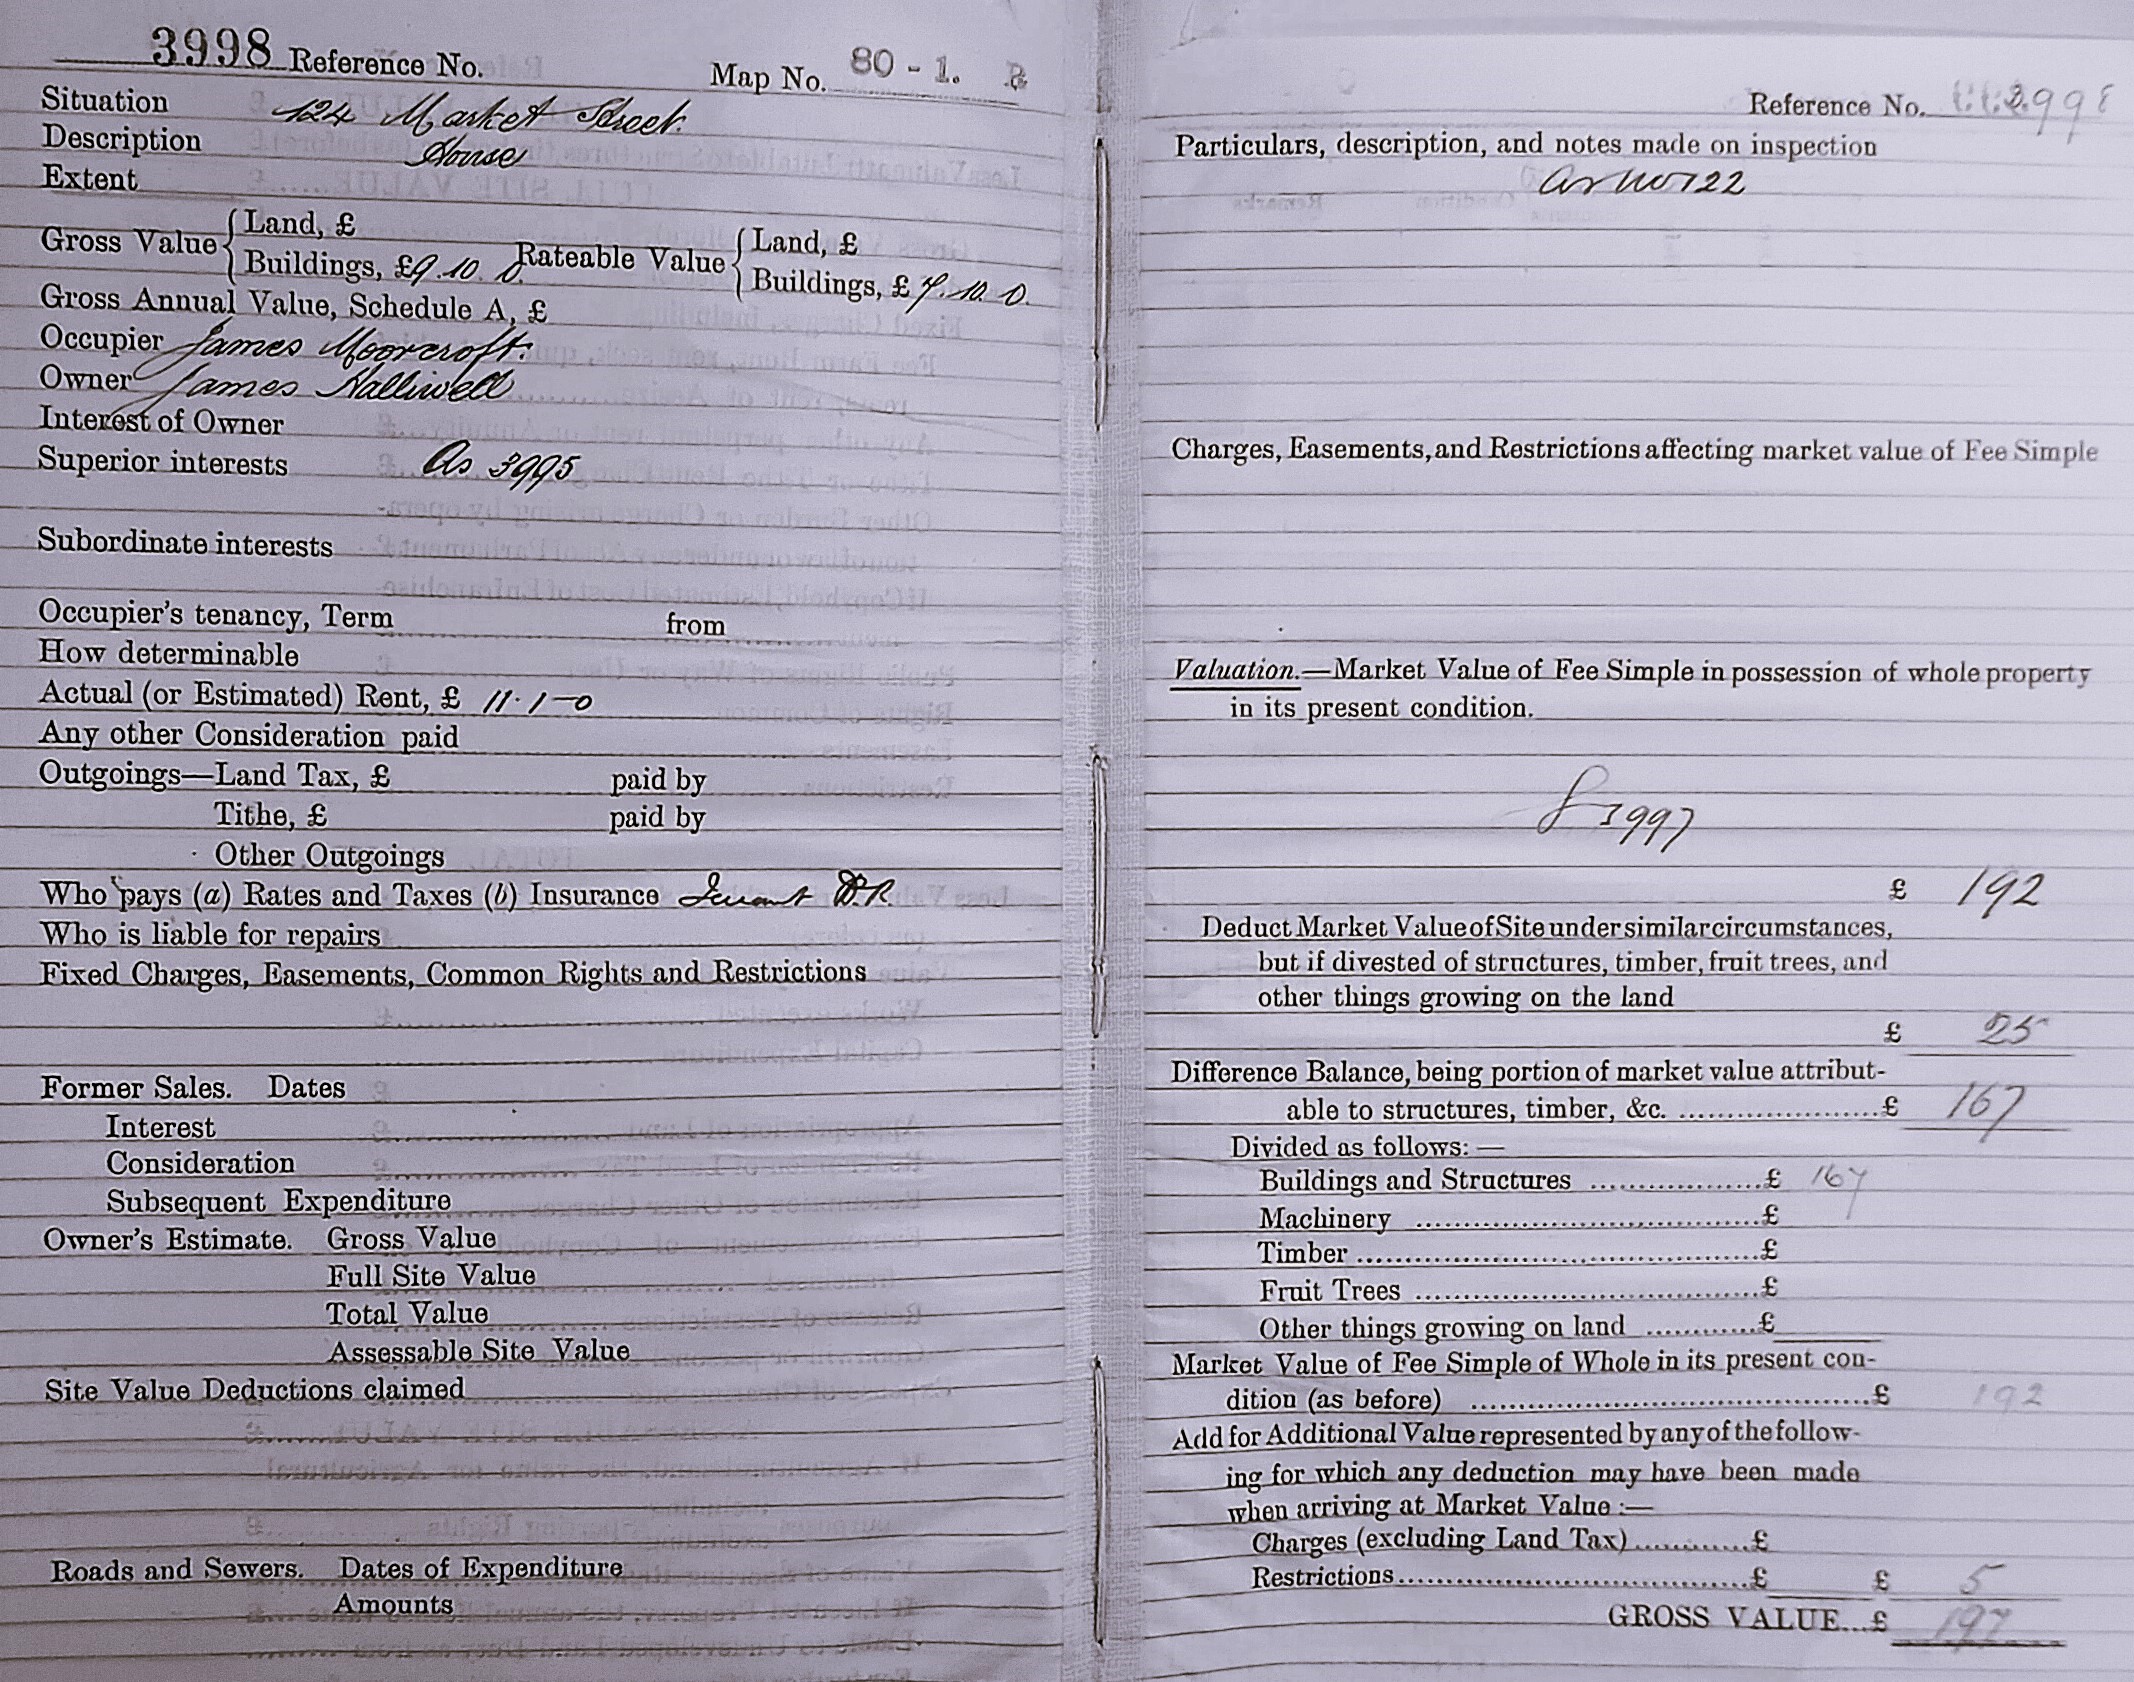 3998 Reference No. Map No. 80 - 1. B
Situation 124 Market Street.
Description House
Extent
Gross Value { Land, £
Buildings, £ 9. 10. 0. Rateable Value { Land, £
Buildings, £ 7. 10. 0.
Gross Annual Value, Schedule A, £
Occupier James Moorcroft.
Owner James Halliwell
Interest of Owner
Superior interests As 3995
Subordinate interests
Occupier's tenancy, Term from
How determinable
Actual (or Estimated) Rent, £ 11. 1 - 0
Any other Consideration paid
Outgoings—Land Tax, £ paid by
Tithe, £ paid by
Other Outgoings
Who pays (a) Rates and Taxes (b) Insurance Tenant
Who is liable for repairs
Fixed Charges, Easements, Common Rights and Restrictions
Former Sales. Dates
Interest
Consideration
Subsequent Expenditure
Owner's Estimate. Gross Value
Full Site Value
Total Value
Assessable Site Value
Site Value Deductions claimed
Roads and Sewers. Dates of Expenditure
Amounts
Reference No. 3998
Particulars, description, and notes made on inspection
As No 122
Charges, Easements, and Restrictions affecting market value of Fee Simple
Valuation.—Market Value of Fee Simple in possession of whole property
in its present condition.
3997
£ 192
Deduct Market Value of Site under similar circumstances,
but if divested of structures, timber, fruit trees, and
other things growing on the land
£ 25
Difference Balance, being portion of market value attribut-
able to structures, timber, &c. £ 167
Divided as follows: —
Buildings and Structures £ 167
Machinery £
Timber £
Fruit Trees £
Other things growing on land £
Market Value of Fee Simple of Whole in its present con-
dition (as before) £ 192
Add for Additional Value represented by any of the follow-
ing for which any deduction may have been made
when arriving at Market Value :—
Charges (excluding Land Tax) £
Restrictions £ £ 5
GROSS VALUE... £ 197